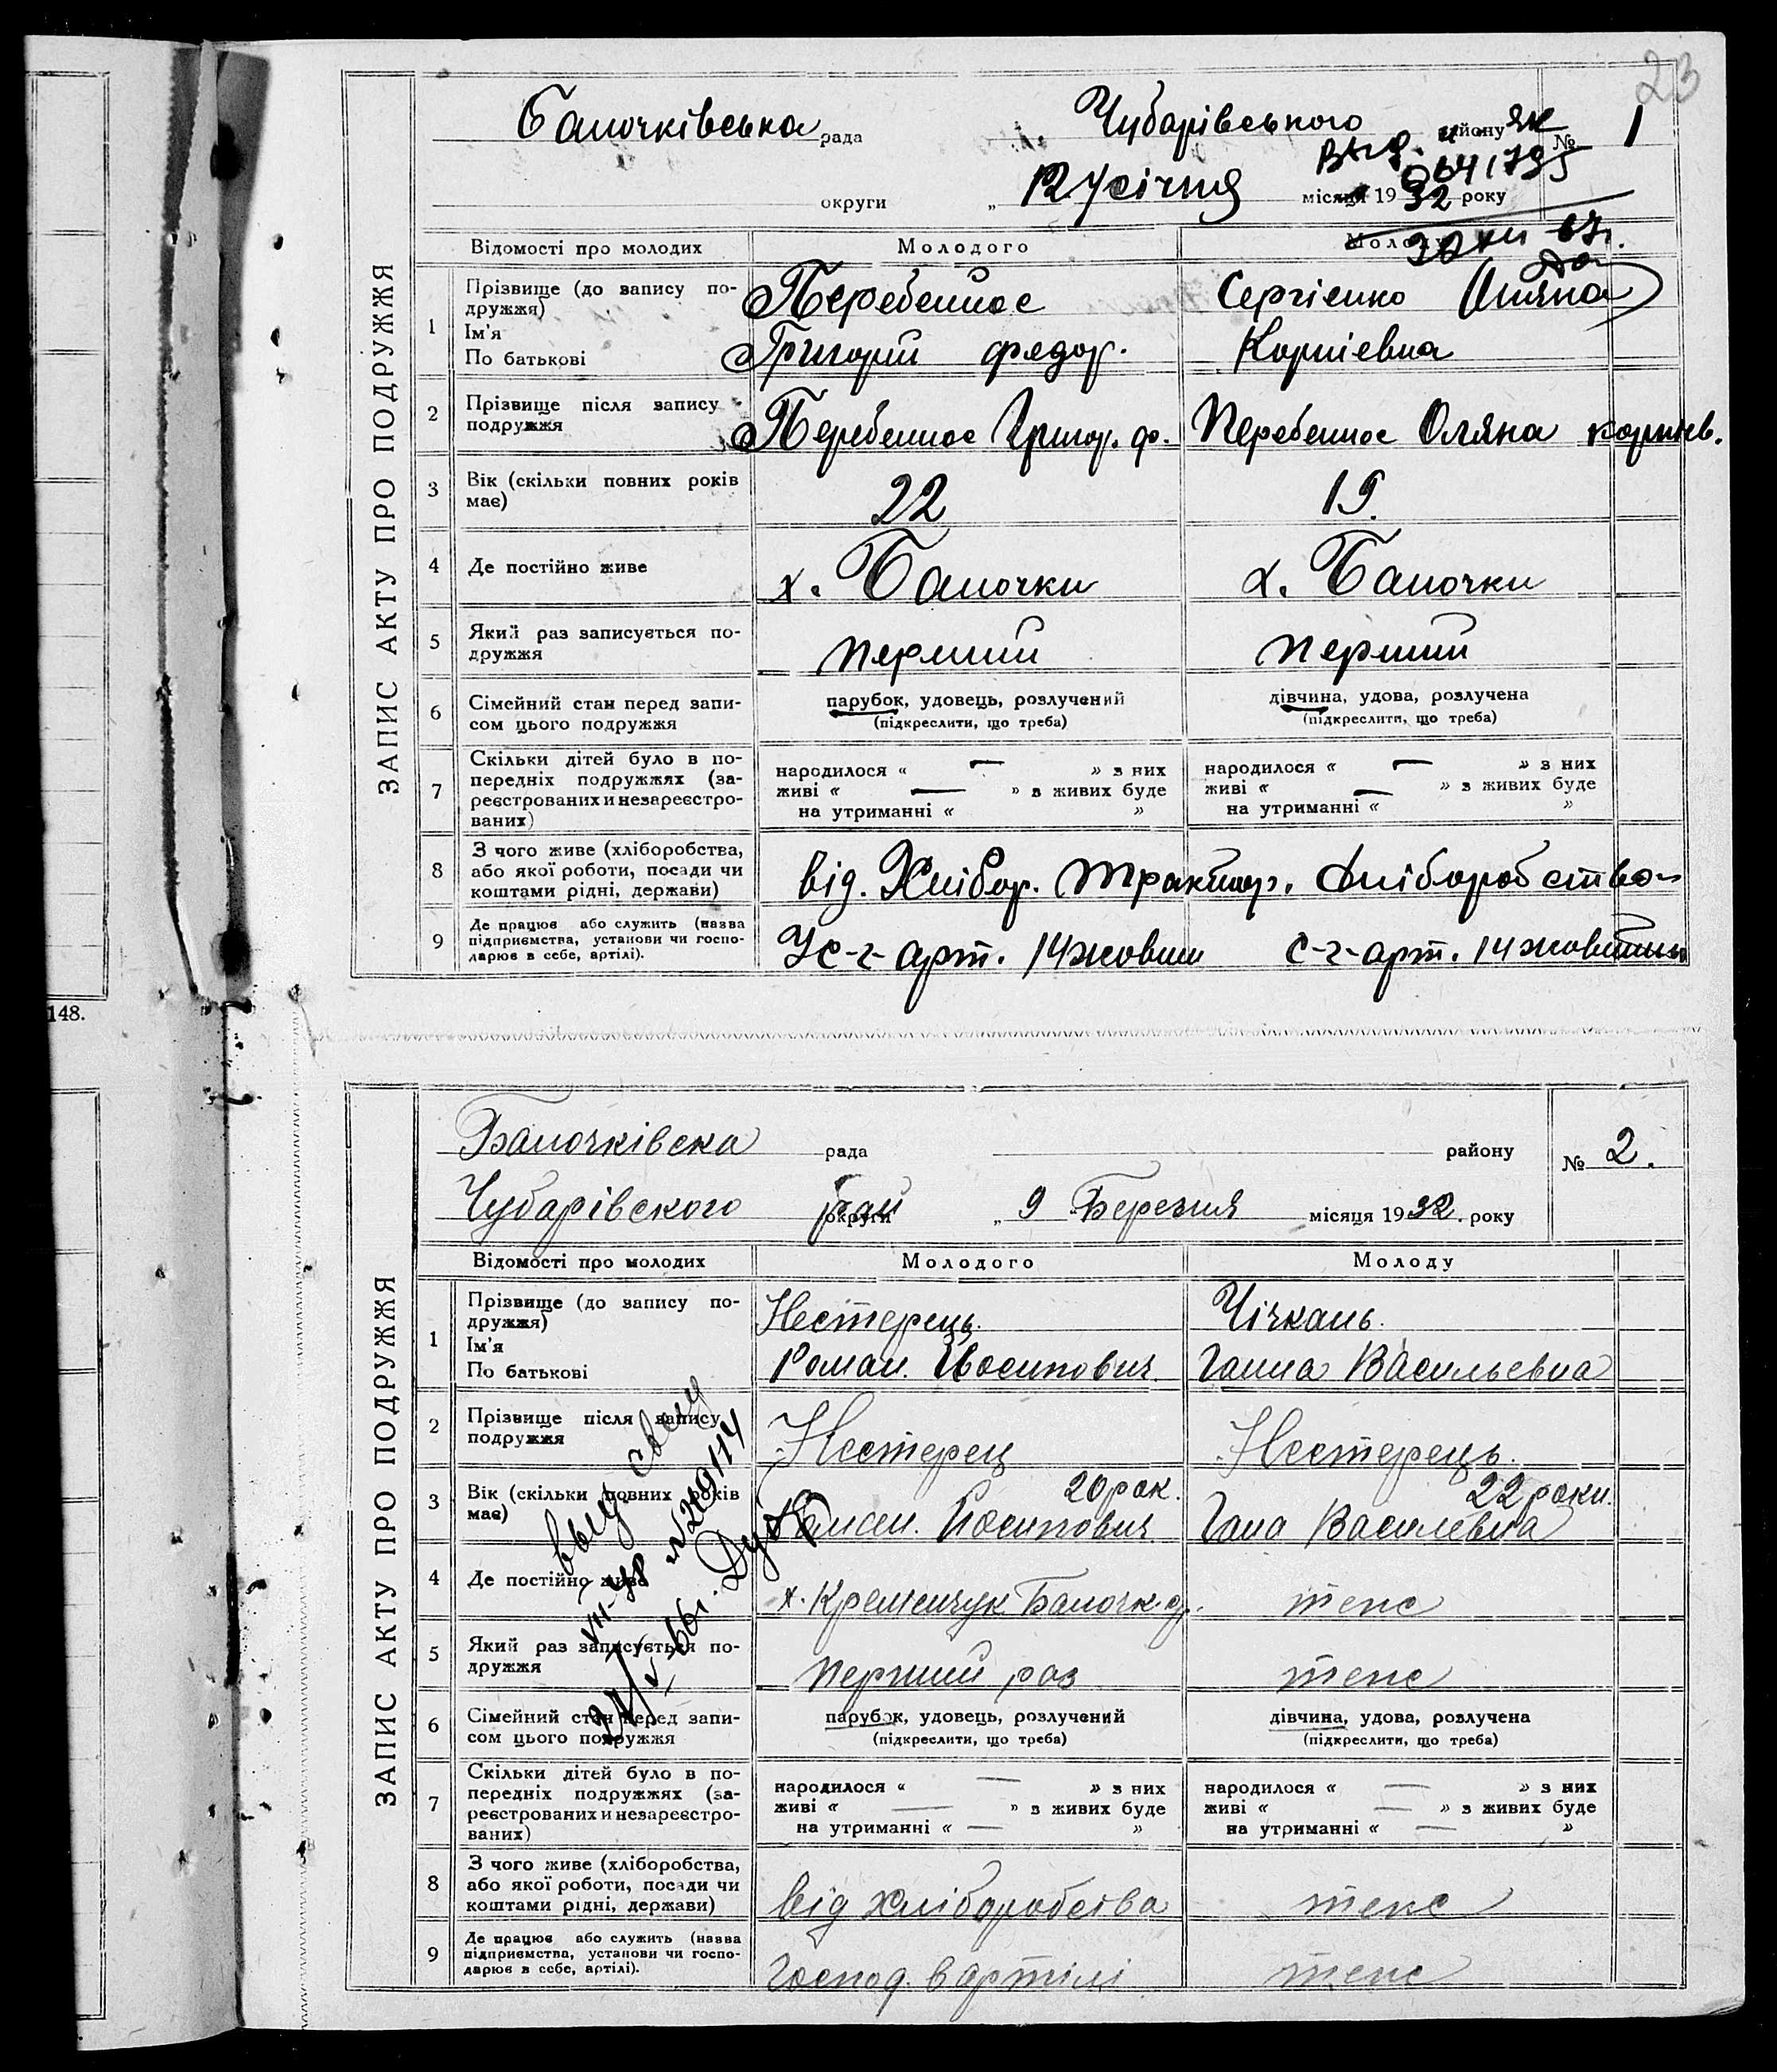 23
Балочківська рада Чубарівського району № 1
округи „ 12 січня місяця 1932 року
0641795
ЗАПИС АКТУ ПРО ПОДРУЖЖЯ
Відомості про молодих Молодого Молоду
1 Прізвище (до запису по-
дружжя)
Ім'я
По батькові
Перебейнос
Григорій Федор.
Сергіенко
Корніевна
2 Прізвище після запису
подружжя
Перебейнос Григор. ф. Перебейнос Оляна корнієв.
3 Вік (скільки повних років
має)
22 19.
4 Де постійно живе х. Балочки х. Балочки
5 Який раз записується по-
дружжя
перший перший
6 Сімейний стан перед запи-
сом цього подружжя
парубок, удовець, розлучений
(підкреслити, що треба)
дівчина, удова, розлучена
(підкреслити, що треба)
7 Скільки дітей було в по-
передніх подружжях (за-
реєстрованих и незареєстро-
ваних)
народилося « — » з них
живі « — » з живих буде
на утриманні « »
народилося « — » з них
живі « — » з живих буде
на утриманні « »
8 З чого живе (хліборобства,
або якої роботи, посади чи
коштами рідні, держави)
від. Хлібор. тракттор. Хліборобство
9 Де працює або служить (назва
підприємства, установи чи госпо-
дарює в себе, артілі).
с-г-арт. 14 жовтн с-г-арт. 14 жовтня
148.
Балочківска рада району № 2.
Чубарівского рай округи „ 9 Березня місяця 1932. року
ЗАПИС АКТУ ПРО ПОДРУЖЖЯ
Відомості про молодих Молодого Молоду
1 Прізвище (до запису по-
дружжя)
Ім'я
По батькові
Нестерець.
Роман. Йосипович.
Чічкань.
Ганна Васильевна
2 Прізвище після запису
подружжя
Нестерец Нестерець.
3 Вік (скільки повних років
має)
20 рок. 22 роки.
Роман. Йосипович. Гана Василевна
4 Де постійно живе х. Кременчук Балочк. тепс
5 Який раз записується по-
дружжя
перший раз тепс
6 Сімейний стан перед запи-
сом цього подружжя
парубок, удовець, розлучений
(підкреслити, що треба)
дівчина, удова, розлучена
(підкреслити, що треба)
7 Скільки дітей було в по-
передніх подружжях (за-
реєстрованих и незареєстро-
ваних)
народилося « — » з них
живі « — » з живих буде
на утриманні « — »
народилося « — » з них
живі « — » з живих буде
на утриманні « — »
8 З чого живе (хліборобства,
або якої роботи, посади чи
коштами рідні, держави)
від хліборобства тепс
9 Де працює або служить (назва
підприємства, установи чи госпо-
дарює в себе, артілі).
Господ. в артілі тепс